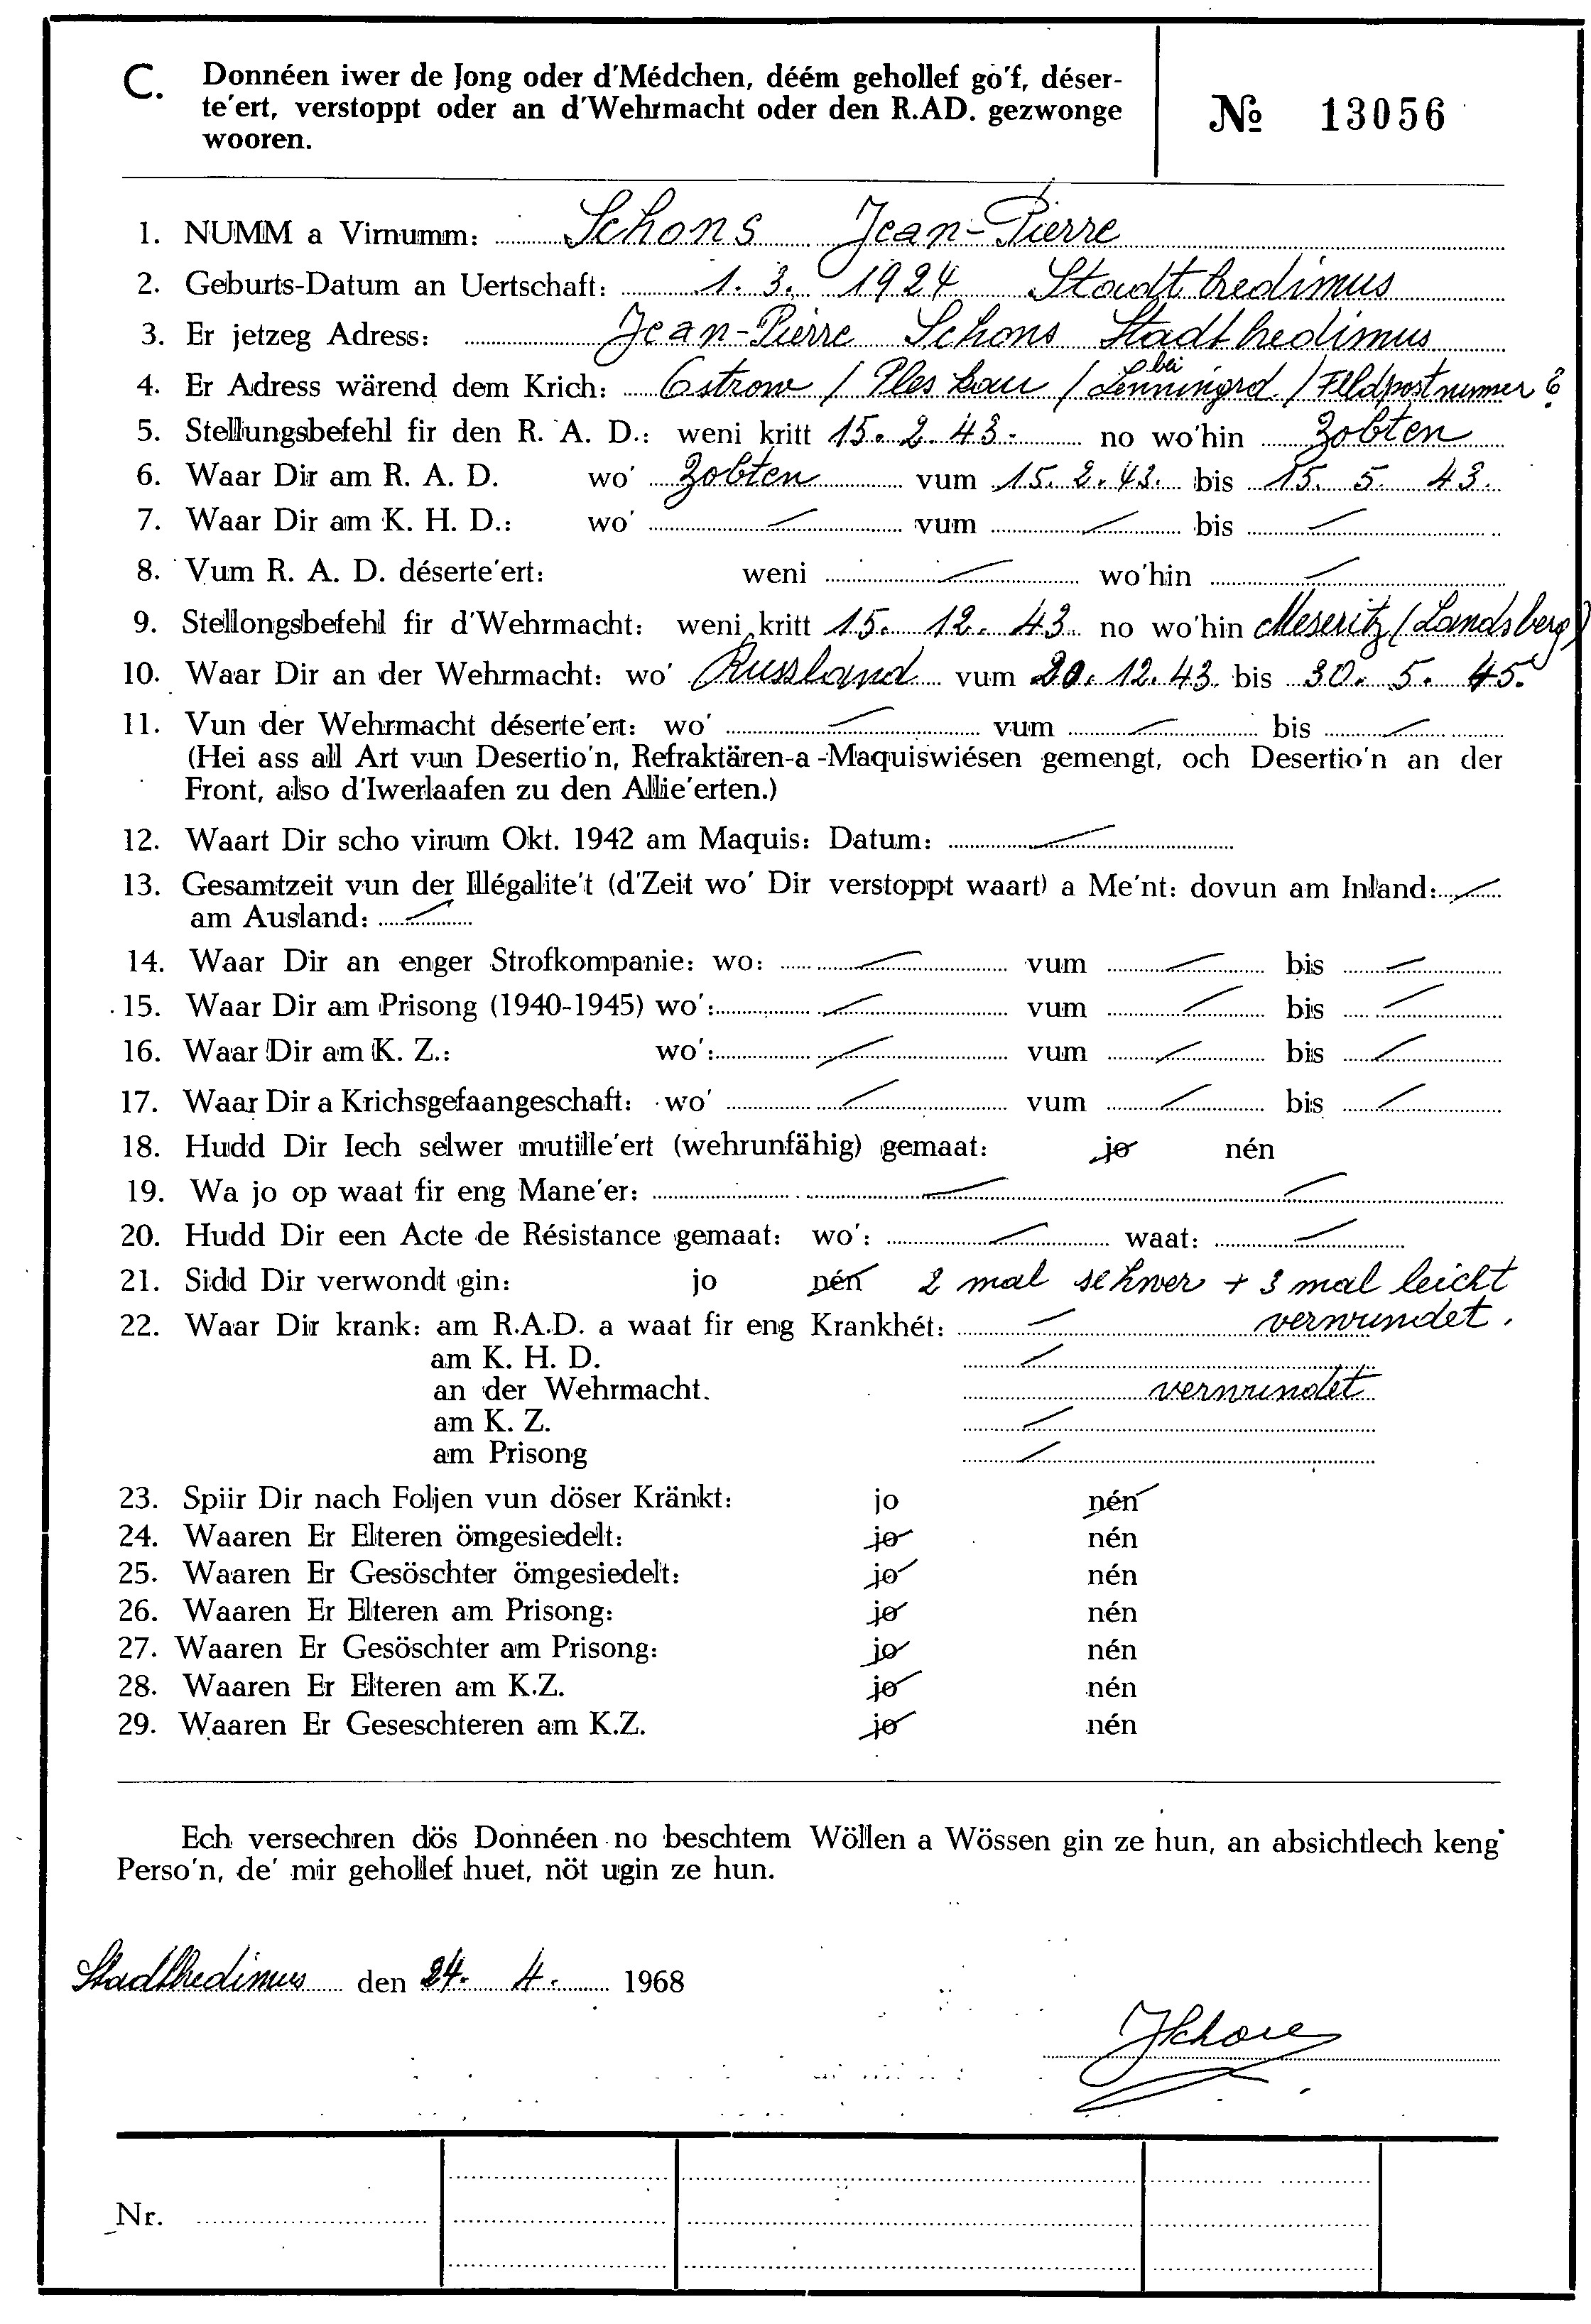 C. Donnéen iwer de Jong oder d'Médchen, déém gehollef go'f, déser-
te'ert, verstoppt oder an d'Wehrmacht oder den R.AD. gezwonge
wooren.
№ 13056
1. NUMM a Virnumm: Schons Jean-Pierre
2. Geburts-Datum an Uertschaft: 1. 3. 1924 Stadtbredimus
3. Er jetzeg Adress: Jean-Pierre Schons Stadtbredimus
4. Er Adress wärend dem Krich: Ostrow / Pleskau / bei Lenningrd / Feldpostnummer ?
5. Stellungsbefehl fir den R. A. D.: weni kritt 15. 2. 43. no wo'hin Zobten
6. Waar Dir am R. A. D. wo' Zobten vum 15. 2. 43. bis 15. 5. 43.
7. Waar Dir am K. H. D.: wo' — vum — bis —
8. Vum R. A. D. déserte'ert: weni — wo'hin —
9. Stellongsbefehl fir d'Wehrmacht: weni kritt 15. 12. 43. no wo'hin Meseritz (Landsberg)
10. Waar Dir an der Wehrmacht: wo' Russland vum 20. 12. 43. bis 30. 5. 45.
11. Vun der Wehrmacht déserte'ert: wo' — vum — bis —
(Hei ass all Art vun Desertio'n, Refraktären-a-Maquiswiésen gemengt, och Desertio'n an der
Front, also d'Iwerlaafen zu den Allie'erten.)
12. Waart Dir scho virum Okt. 1942 am Maquis: Datum: —
13. Gesamtzeit vun der Illégalite't (d'Zeit wo' Dir verstoppt waart) a Me'nt: dovun am Inland: —
am Ausland: —
14. Waar Dir an enger Strofkompanie: wo: — vum — bis —
15. Waar Dir am Prisong (1940-1945) wo': — vum — bis —
16. Waar Dir am K. Z.: wo': — vum — bis —
17. Waar Dir a Krichsgefaangeschaft: wo' — vum — bis —
18. Hudd Dir Iech selwer mutille'ert (wehrunfähig) gemaat: jo nén
19. Wa jo op waat fir eng Mane'er: — —
20. Hudd Dir een Acte de Résistance gemaat: wo': — waat: —
21. Sidd Dir verwondt gin: jo nén 2 mal schwer + 3 mal leicht
verwundet.
22. Waar Dir krank: am R.A.D. a waat fir eng Krankhét: —
am K. H. D. —
an der Wehrmacht. verwundet
am K. Z. —
am Prisong —
23. Spiir Dir nach Foljen vun döser Kränkt: jo nén
24. Waaren Er Elteren ömgesiedelt: jo nén
25. Waaren Er Gesöschter ömgesiedelt: jo nén
26. Waaren Er Elteren am Prisong: jo nén
27. Waaren Er Gesöschter am Prisong: jo nén
28. Waaren Er Elteren am K.Z. jo nén
29. Waaren Er Geseschteren am K.Z. jo nén
Ech versechren dös Donnéen no beschtem Wöllen a Wössen gin ze hun, an absichtlech keng
Perso'n, de' mir gehollef huet, nöt ugin ze hun.
Stadtbredimus den 24. 4. 1968
JSchons
Nr.